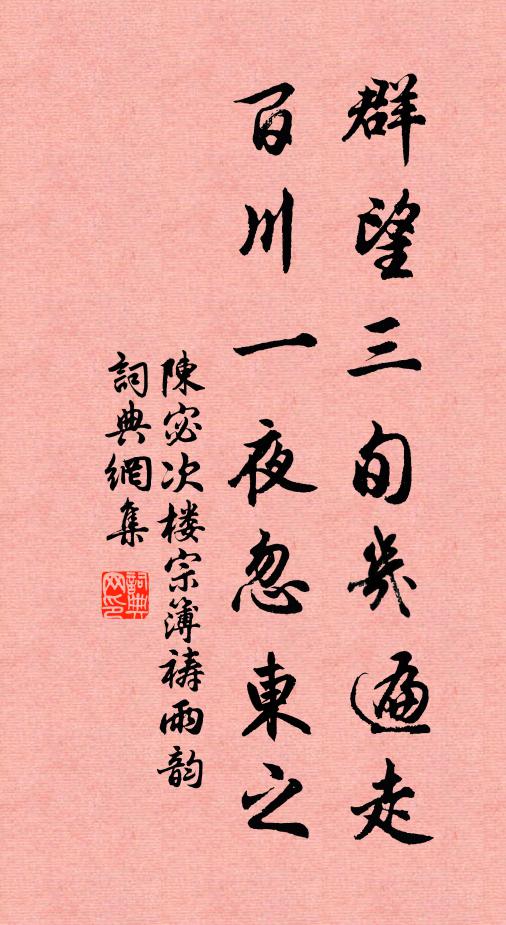 群望三旬幾遍走
百川一夜忽東之
陳宓次楼宗簿禱雨韵
詞典網集
詞典网印